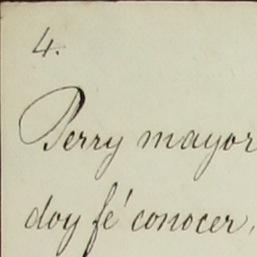 4.
Perry mayor
doy fé conocer,